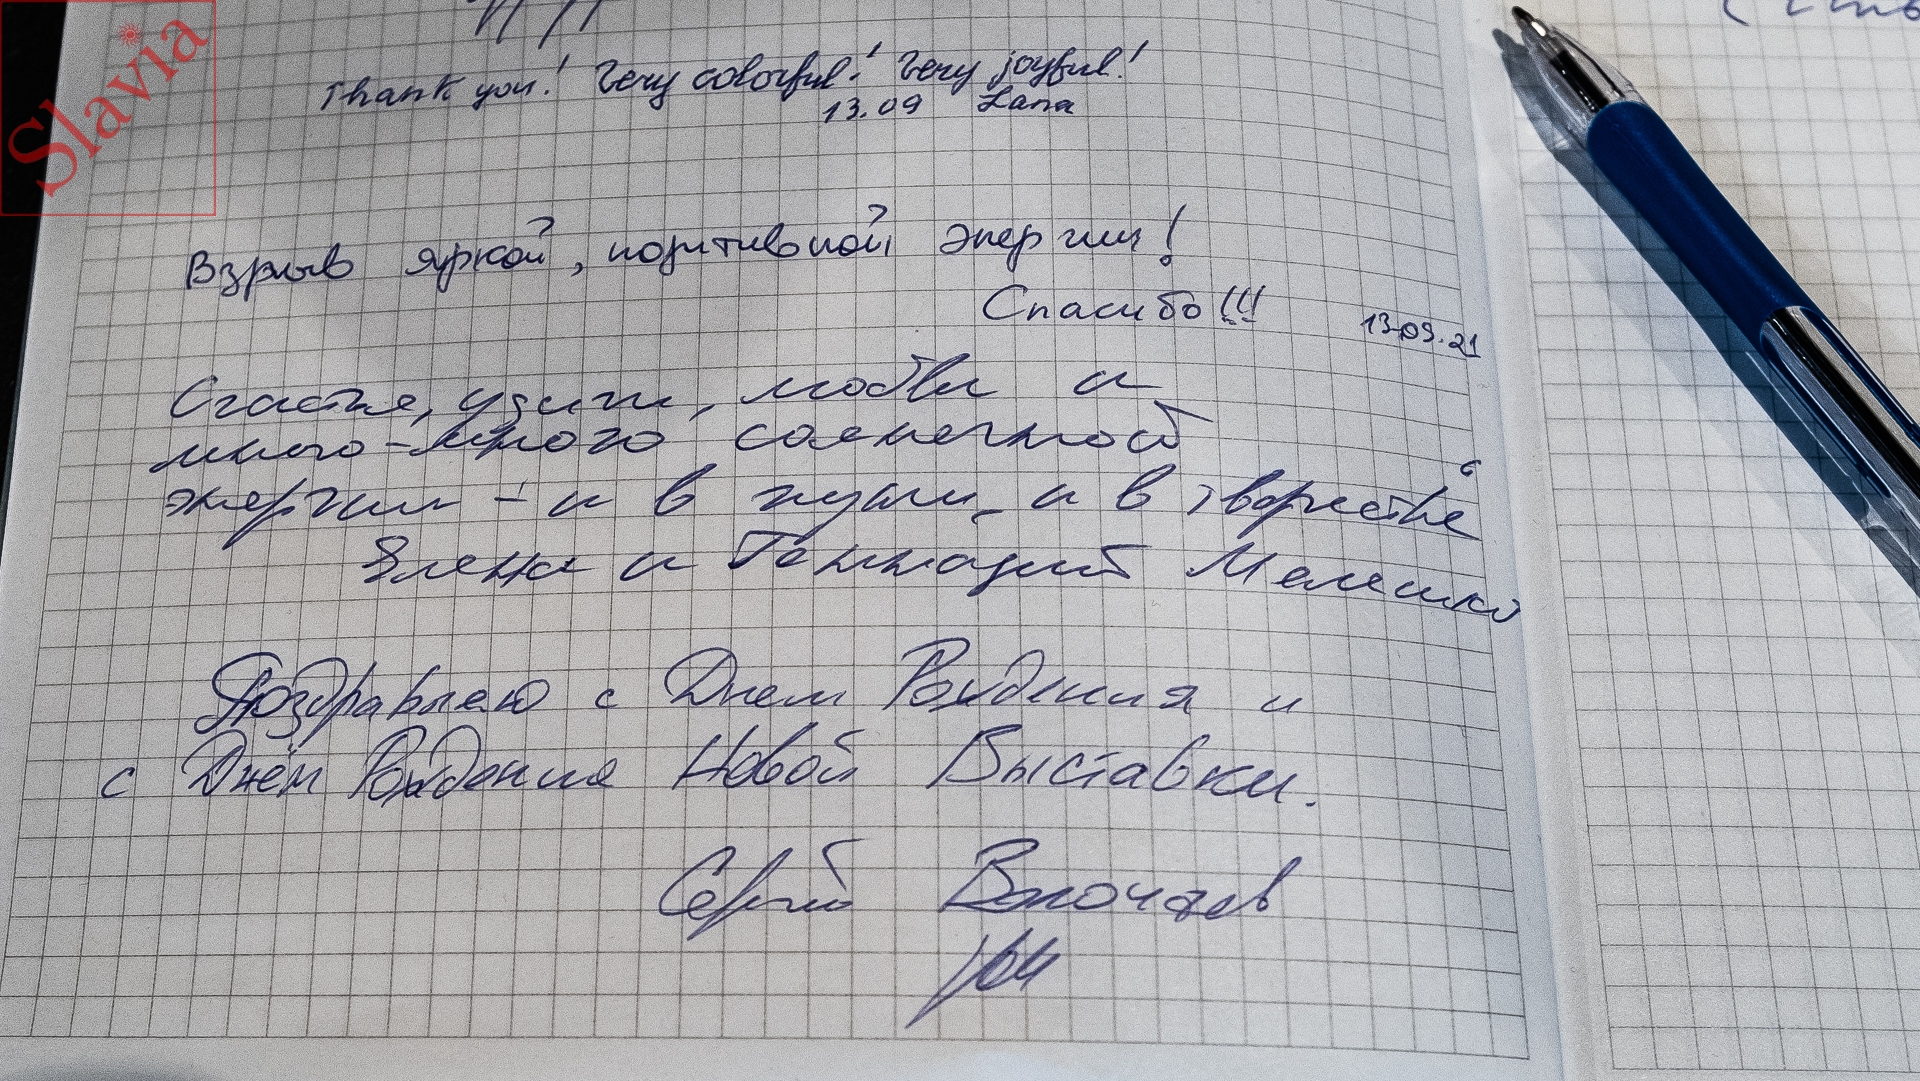 Slavia
Thank you! Very colorful! Very joyful!
13.09 Lana
Взрыв яркой, позитивной энергии!
Спасибо!!!
13.09.21
Счастья, удачи, любви и
много-много солнечной
энергии - и в жизни, и в творчестве
Елена и Геннадий
Поздравляю с Днем Рождения и
с Днём Рождения Новой Выставки.
Сергей